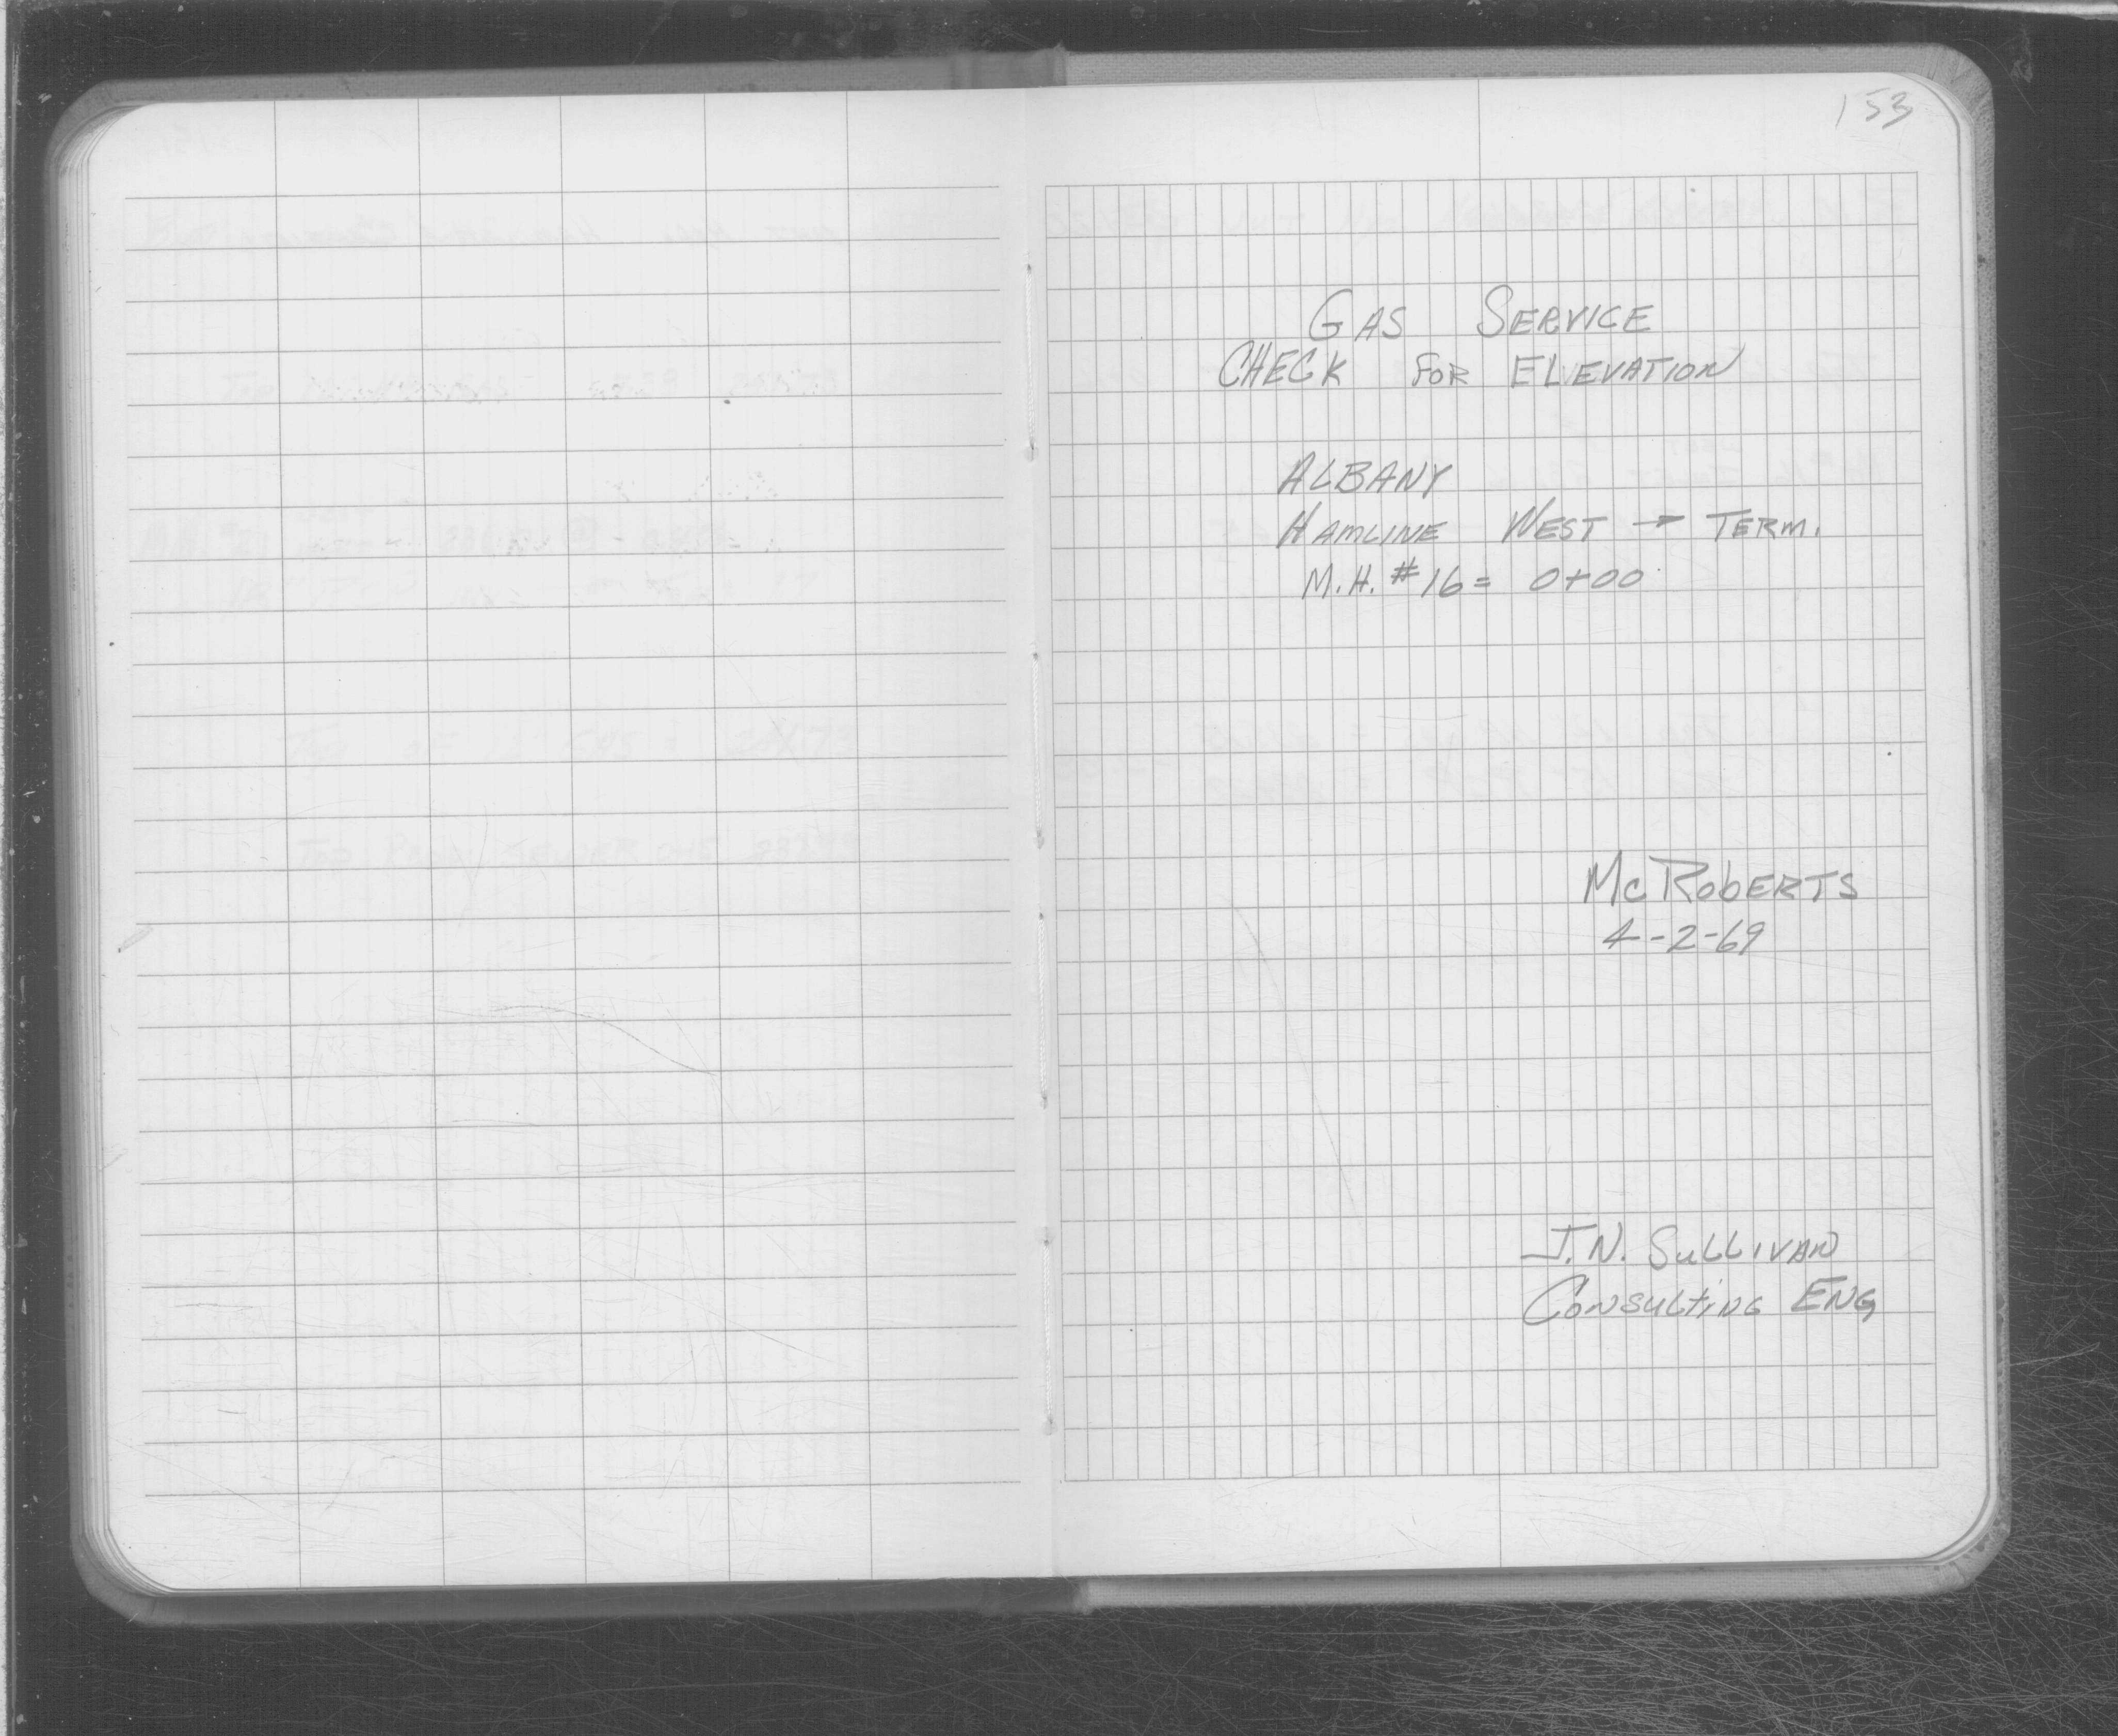 153
GAS SERVICE
CHECK FOR ELEVATION
ALBANY
HAMLINE WEST → TERM.
M.H. #16 = 0+00
McROBERTS
4-2-69
J.N. SULLIVAN
CONSULTING ENG